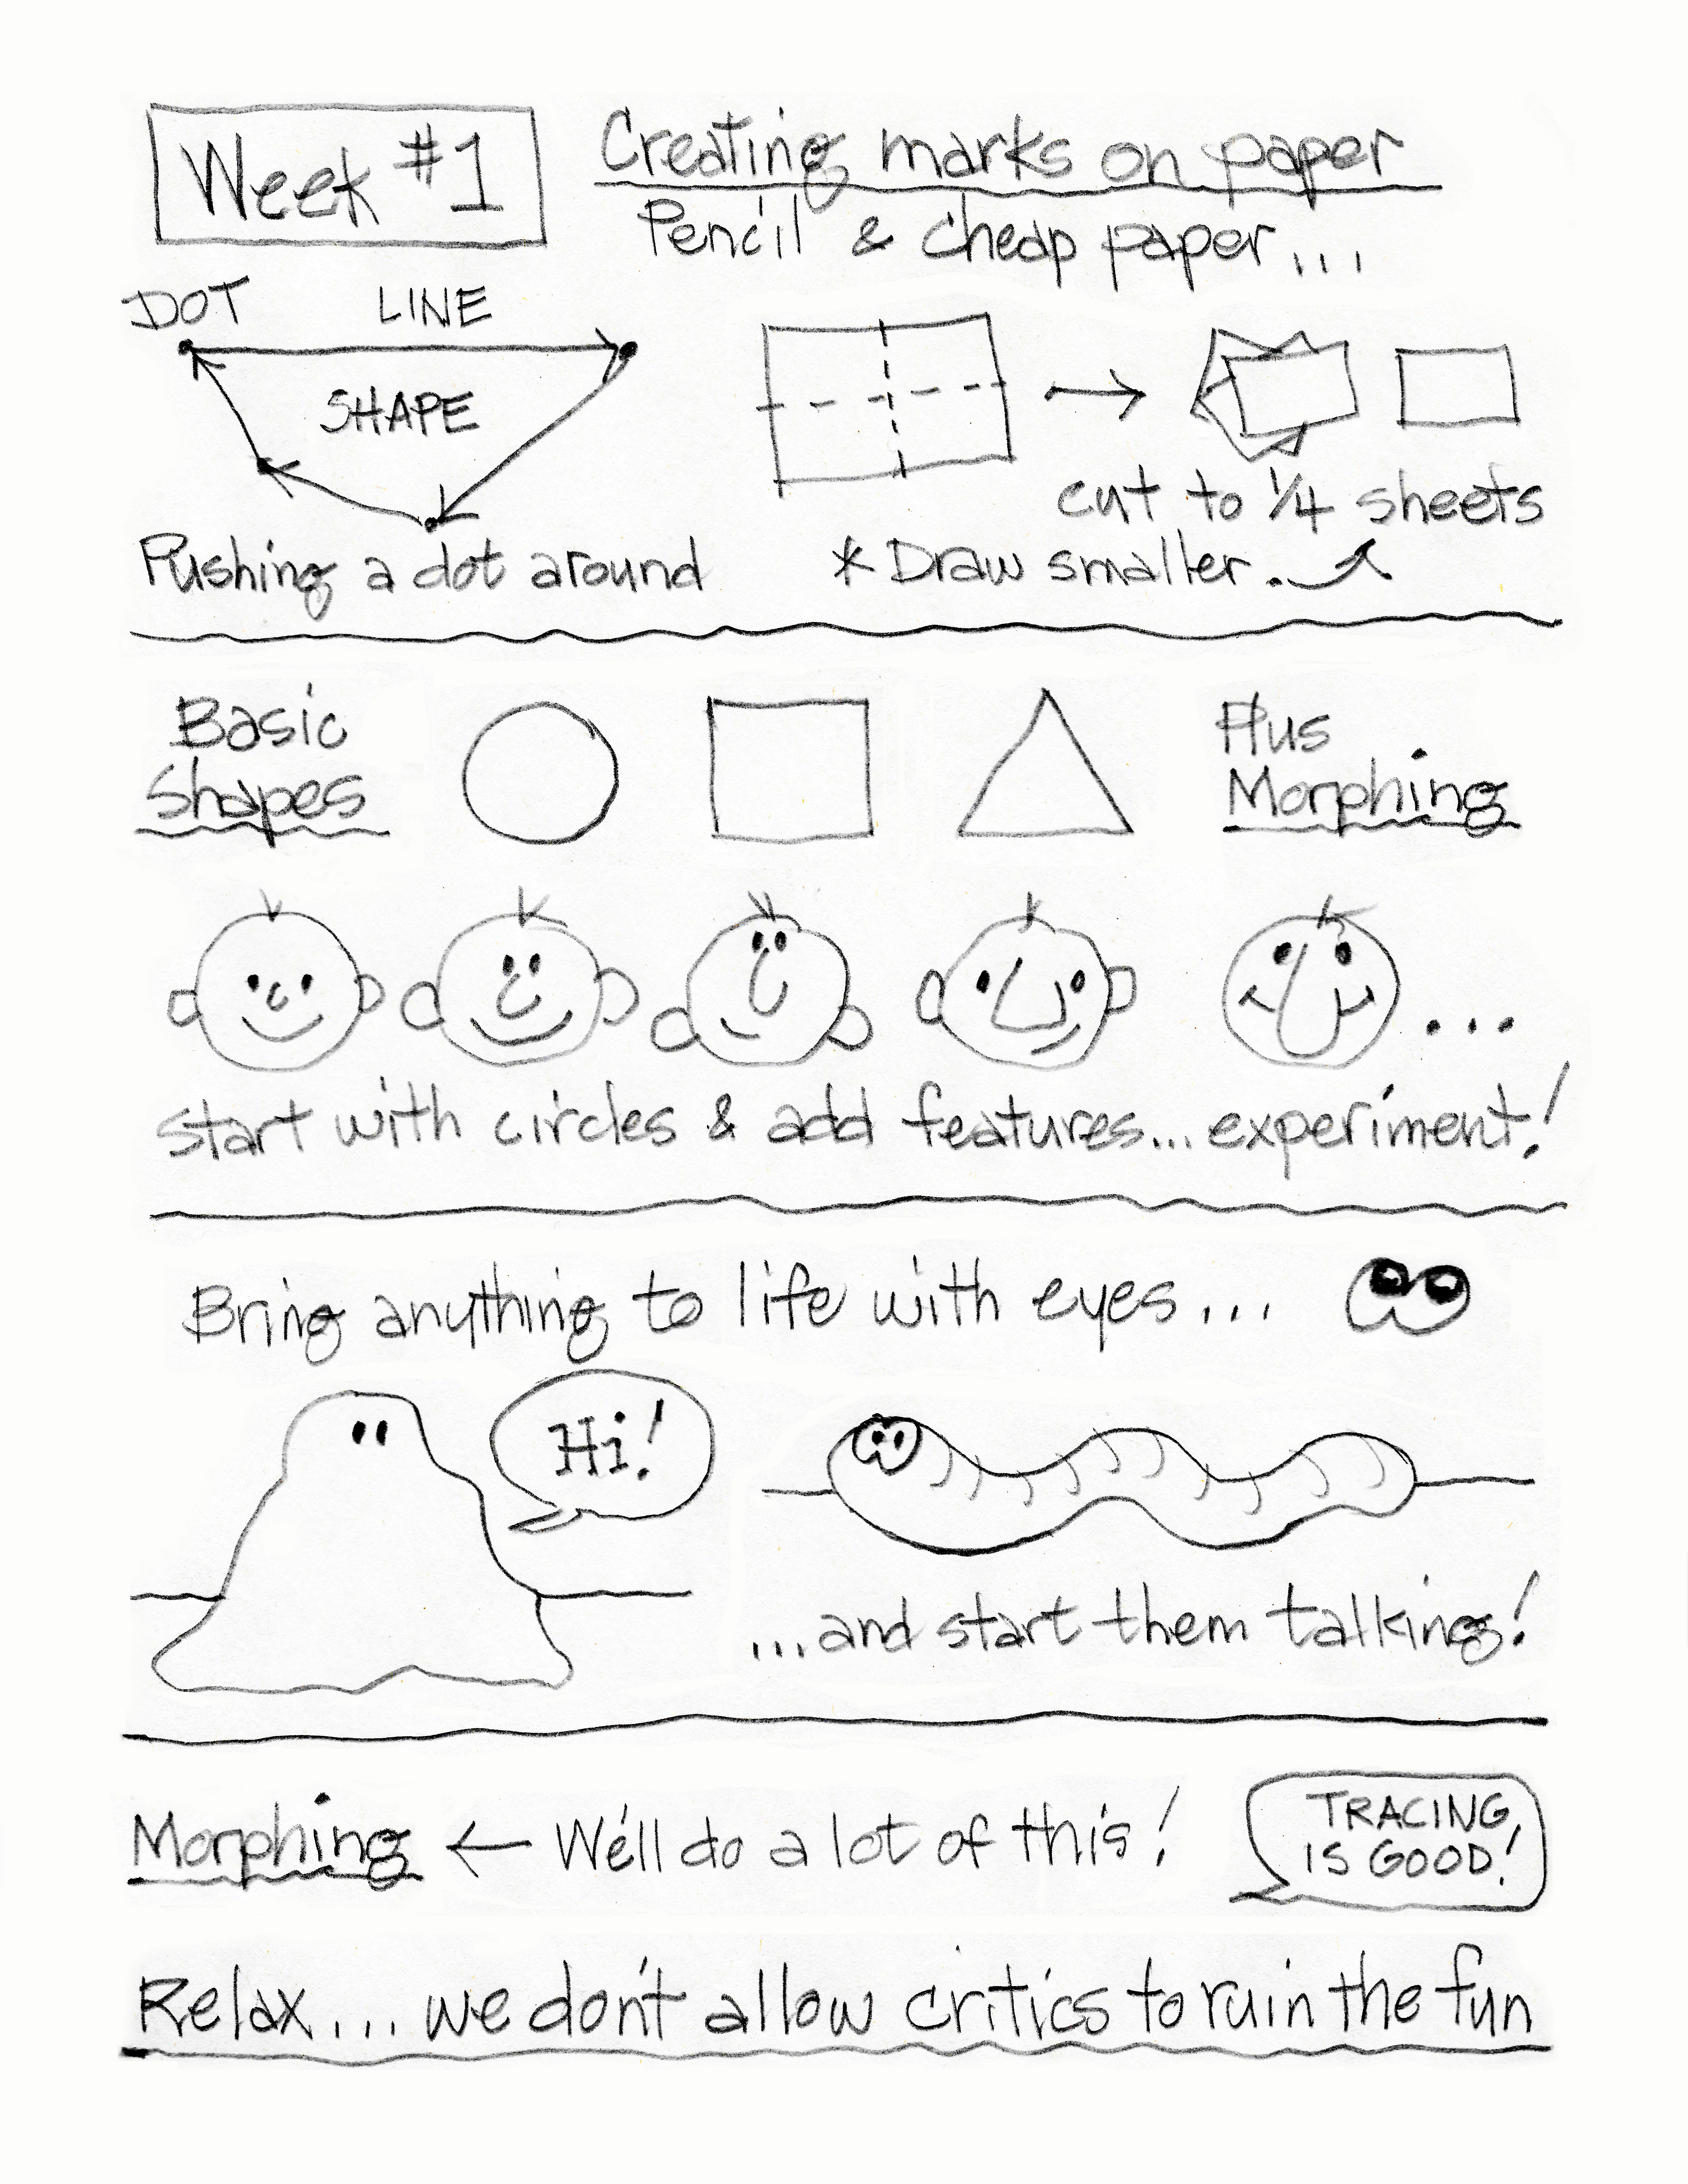 Week #1
Creating marks on paper
Pencil & cheap paper...
DOT LINE
SHAPE
cut to 1/4 sheets
Pushing a dot around
* Draw smaller.
Basic
Shapes
Plus
Morphing
start with circles & add features... experiment!
Bring anything to life with eyes...
Hi!
...and start them talking!
Morphing ← We'll do a lot of this!
TRACING
IS GOOD!
Relax... we don't allow critics to ruin the fun